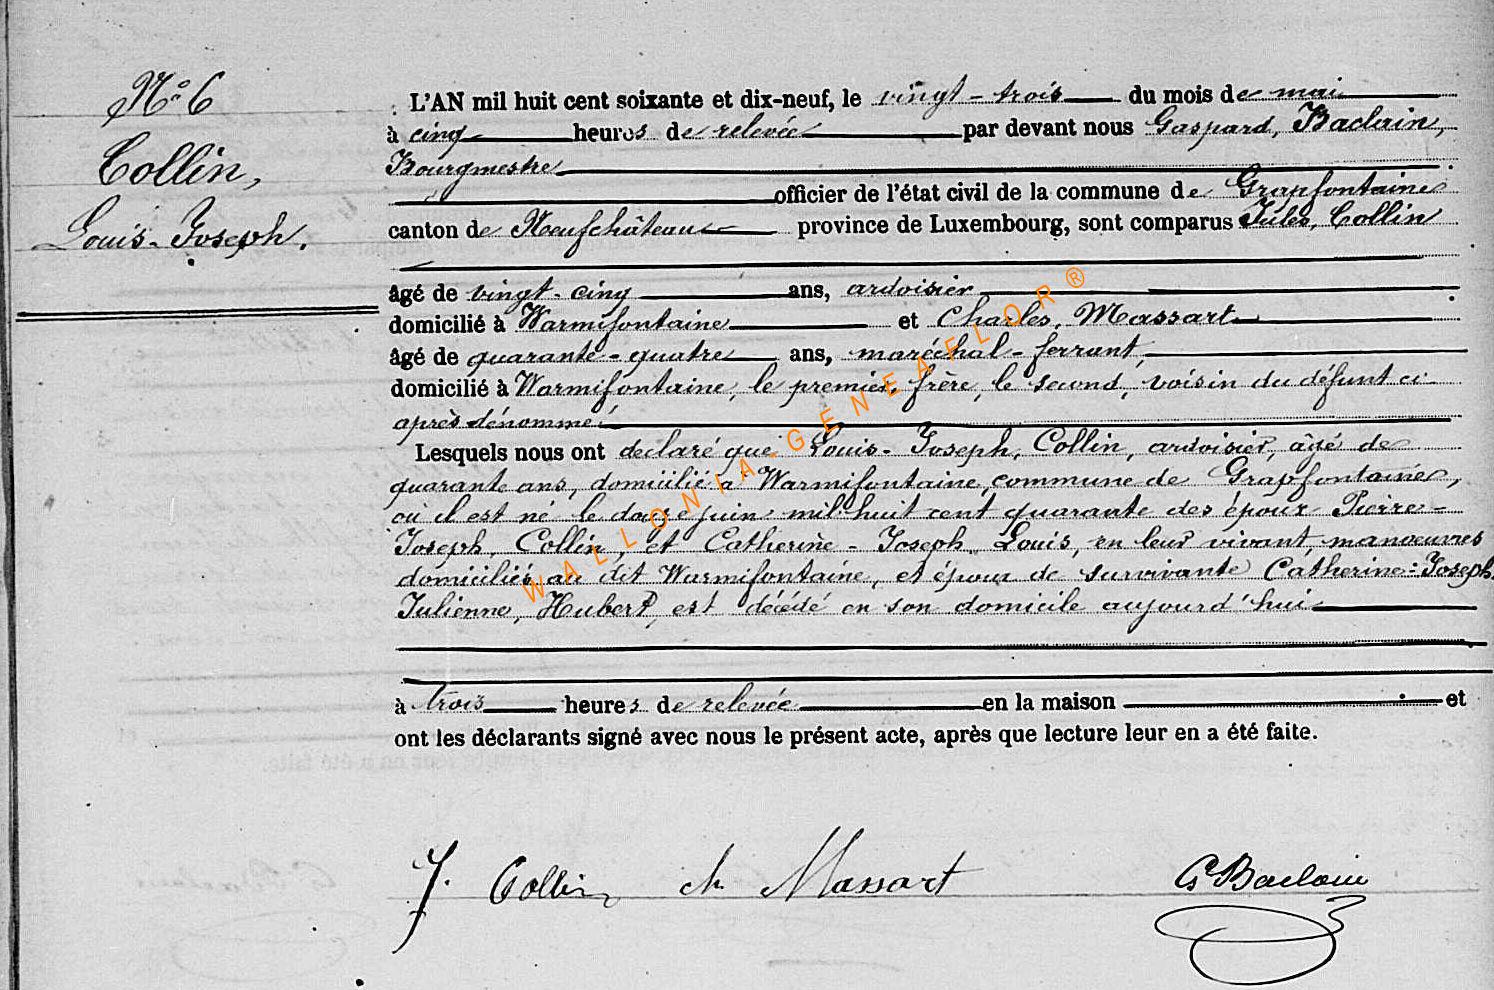 N° 6
Collin,
Louis-Joseph.
L'AN mil huit cent soixante et dix-neuf, le vingt-trois du mois de mai
à cinq heures de relevée par devant nous Gaspard, Baclain,
Bourgmestre
officier de l'état civil de la commune de Grapfontaine
canton de Neufchâteau province de Luxembourg, sont comparus Jules, Collin
âgé de vingt-cinq ans, ardoisier
domicilié à Warmifontaine et Charles, Massart
âgé de quarante-quatre ans, maréchal-ferrant,
domicilié à Warmifontaine, le premier, frère, le second, voisin du défunt ci-
après dénommé
Lesquels nous ont declaré que Louis-Joseph, Collin, ardoisier, âgé de
quarante ans, domicilié à Warmifontaine, commune de Grapfontaine,
où il est né le douze juin mil huit cent quarante des époux Pierre-
Joseph, Collin, et Catherine-Joseph Louis, en leur vivant, manoeuvres
domiciliés au dit Warmifontaine, et époux de survivante Catherine-Joseph
Julienne, Hubert, est décédé en son domicile aujourd'hui
à trois heures de relevée en la maison et
ont les déclarants signé avec nous le présent acte, après que lecture leur en a été faite.
J. Collin ch Massart G Baclain
WALLONIA-GENEAFLOR®